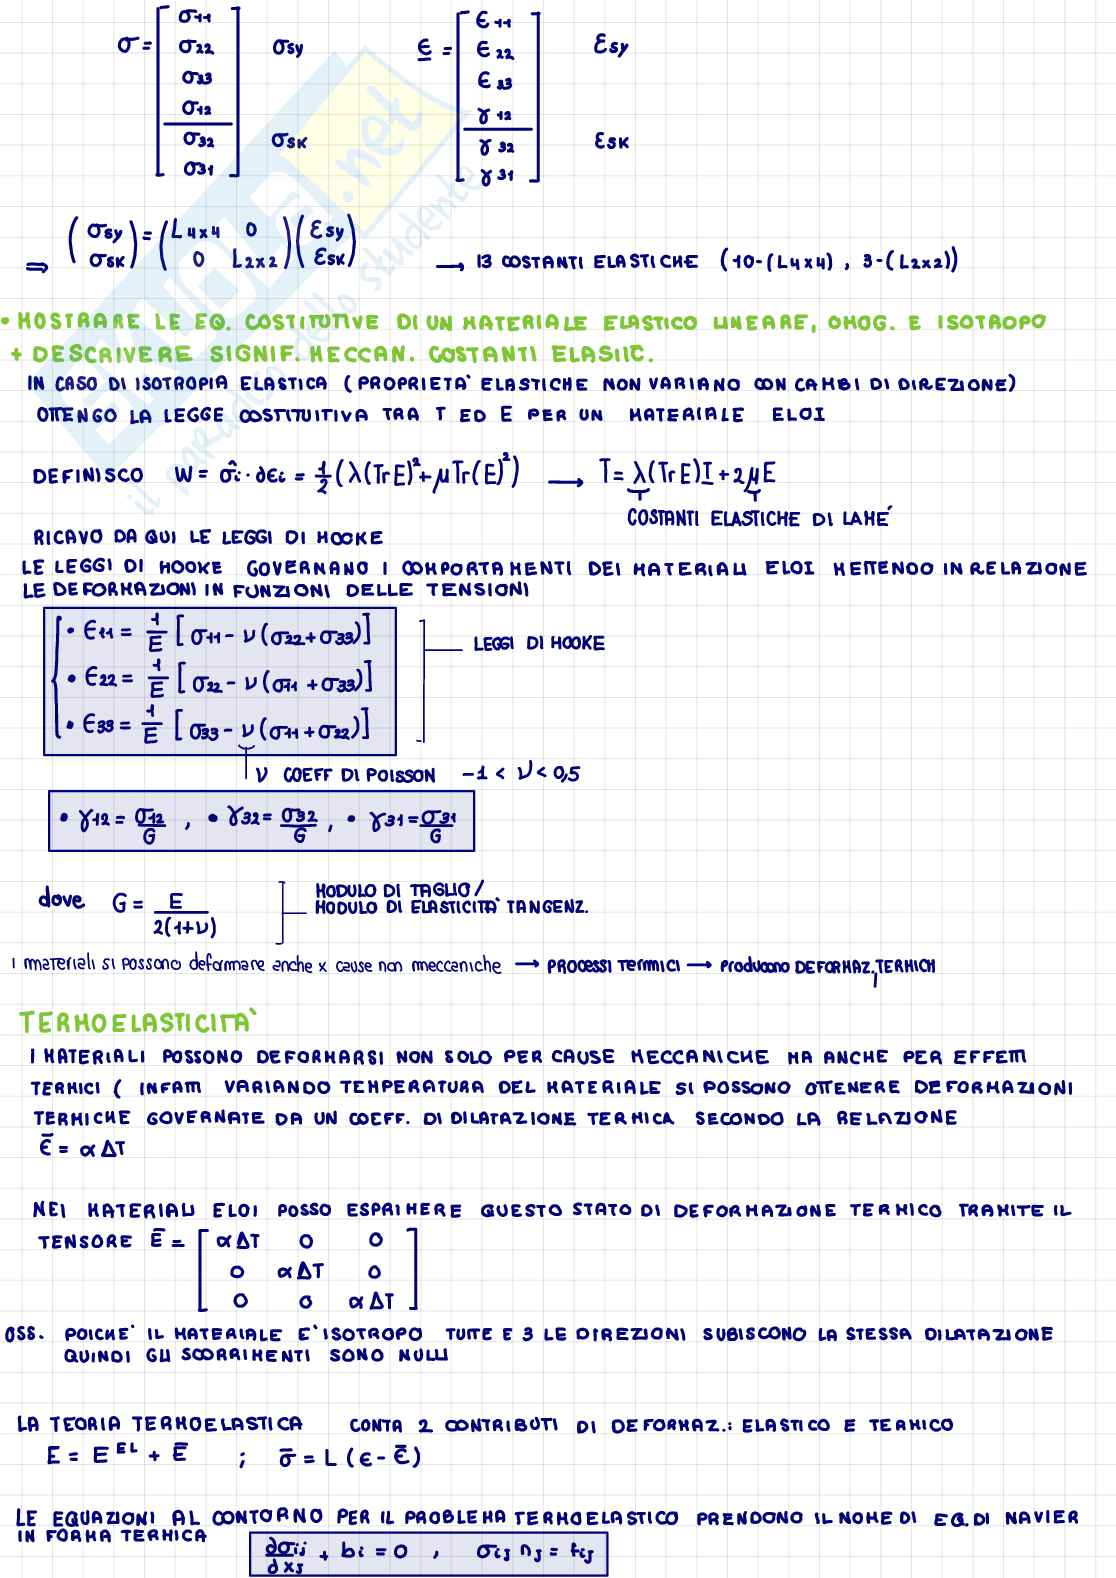 σ = [σ11 σ22 σ33 σ12 σ32 σ31] σsy σsk ε = [ε11 ε22 ε33 γ12 γ32 γ31] εsy εsk
⇒ (σsy σsk) = (L4x4 0 0 L2x2)(εsy εsk) → 13 COSTANTI ELASTICHE (10-(L4x4), 3-(L2x2))
• MOSTRARE LE EQ. COSTITUTIVE DI UN MATERIALE ELASTICO LINEARE, OMOG. E ISOTROPO
+ DESCRIVERE SIGNIF. MECCAN. COSTANTI ELASTIC.
IN CASO DI ISOTROPIA ELASTICA (PROPRIETA' ELASTICHE NON VARIANO CON CAMBI DI DIREZIONE)
OTTENGO LA LEGGE COSTITUITIVA TRA T ED E PER UN MATERIALE ELOI
DEFINISCO W = σ̂i · ∂εi = 1/2 (λ(TrE)² + μTr(E)²) → T = λ(TrE)I + 2μE
COSTANTI ELASTICHE DI LAMÉ
RICAVO DA QUI LE LEGGI DI HOOKE
LE LEGGI DI HOOKE GOVERNANO I COMPORTAMENTI DEI MATERIALI ELOI METTENDO IN RELAZIONE
LE DEFORMAZIONI IN FUNZIONI DELLE TENSIONI
• ε11 = 1/E [σ11 - ν(σ22+σ33)]
LEGGI DI HOOKE
• ε22 = 1/E [σ22 - ν(σ11+σ33)]
• ε33 = 1/E [σ33 - ν(σ11+σ22)]
ν COEFF DI POISSON -1 < ν < 0,5
• γ12 = σ12/G , • γ32 = σ32/G , • γ31 = σ31/G
dove G = E/2(1+ν) MODULO DI TAGLIO/
MODULO DI ELASTICITA' TANGENZ.
i materiali si possono deformare anche x cause non meccaniche → PROCESSI TERMICI → producono DEFORMAZ. TERMICH
TERMOELASTICITA'
I MATERIALI POSSONO DEFORMARSI NON SOLO PER CAUSE MECCANICHE MA ANCHE PER EFFETTI
TERMICI ( INFATTI VARIANDO TEMPERATURA DEL MATERIALE SI POSSONO OTTENERE DEFORMAZIONI
TERMICHE GOVERNATE DA UN COEFF. DI DILATAZIONE TERMICA SECONDO LA RELAZIONE
ε̄ = αΔT
NEI MATERIALI ELOI POSSO ESPRIMERE QUESTO STATO DI DEFORMAZIONE TERMICO TRAMITE IL
TENSORE Ē = [αΔT 0 0
0 αΔT 0
0 0 αΔT]
OSS. POICHE' IL MATERIALE E' ISOTROPO TUTTE E 3 LE DIREZIONI SUBISCONO LA STESSA DILATAZIONE
QUINDI GLI SCORRIMENTI SONO NULLI
LA TEORIA TERMOELASTICA CONTA 2 CONTRIBUTI DI DEFORMAZ.: ELASTICO E TERMICO
E = E^EL + Ē ; σ̄ = L(ε - ε̄)
LE EQUAZIONI AL CONTORNO PER IL PROBLEMA TERMOELASTICO PRENDONO IL NOME DI EQ. DI NAVIER
IN FORMA TERMICA
∂σij/∂xj + bi = 0 , σij nj = tij
SKUOLA.net
il paradiso dello studente